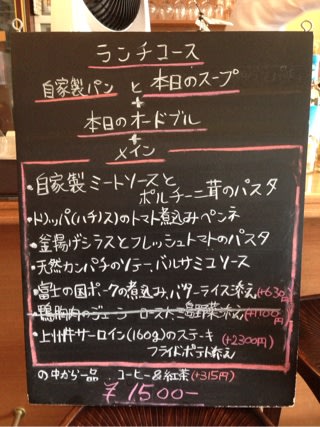 ランチコース
自家製パン と 本日のスープ
+
本日のオードブル
+
メイン
・自家製ミートソースと
ポルチーニ茸のパスタ
・トリッパ(ハチノス)のトマト煮込みペンネ
・釜揚げシラスとフレッシュトマトのパスタ
・天然カンパチのソテー、バルサミコソース
・富士の国ポークの煮込み、バターライス添え(+630円)
・鴨胸肉のジューシーロースト 三島野菜添え(+1100円)
・上州牛サーロイン(160g)のステーキ
フライドポテト添え (+2300円)
の中から一品 コーヒー&紅茶(+315円)
¥1500-